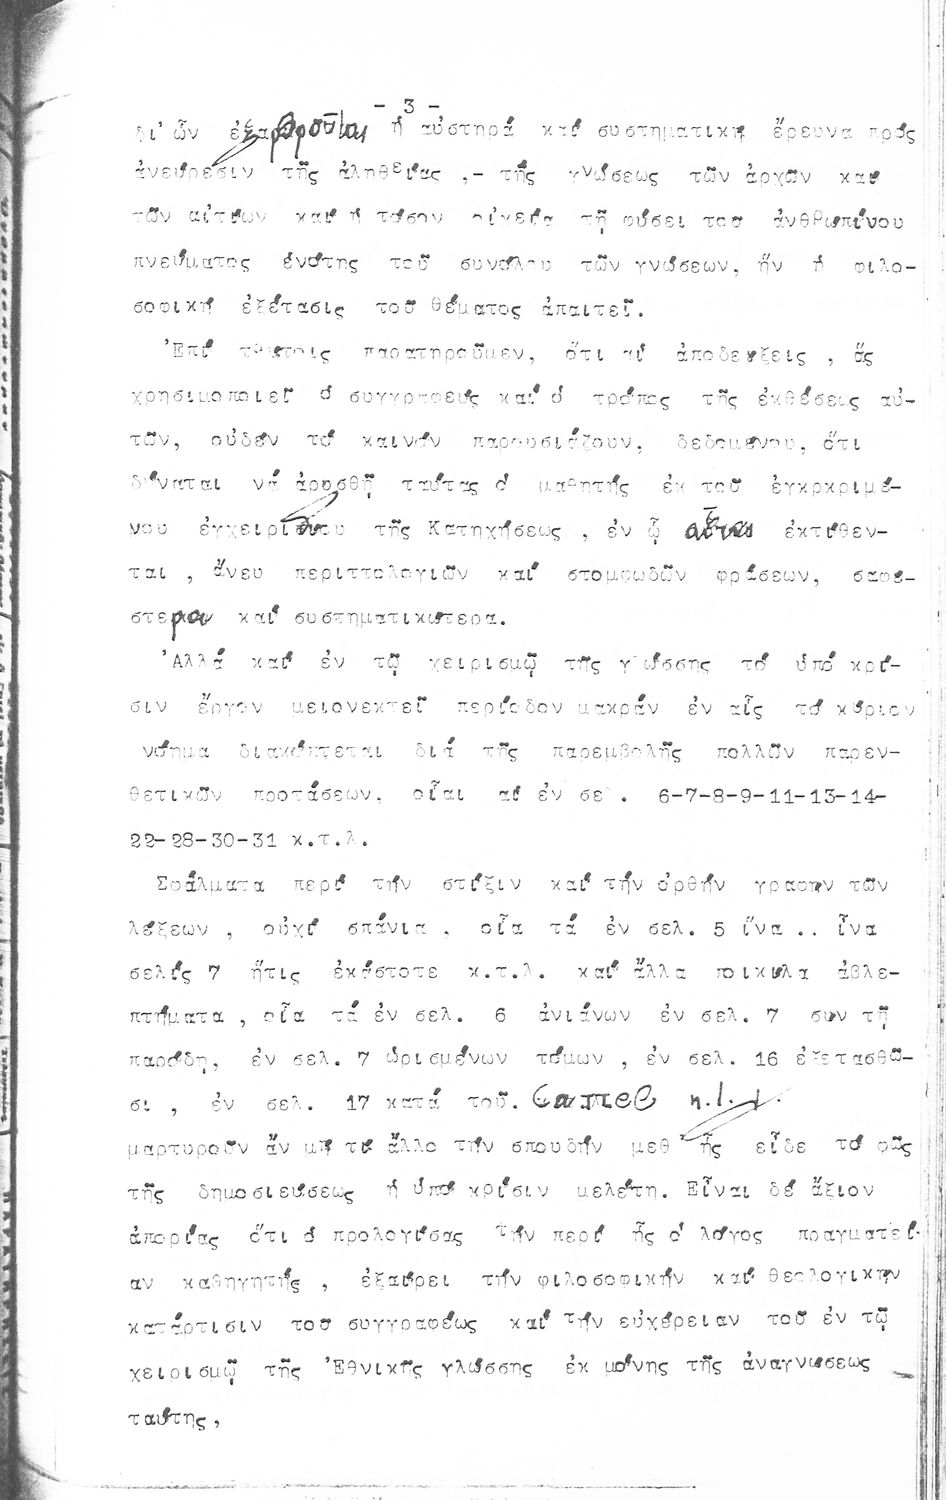 - 3 -
δι' ὧν ἐξαρθροῦται ἡ αὐστηρά καί συστηματική ἔρευνα πρός
ἀνεύρεσιν τῆς ἀληθείας ,- τῆς γνώσεως τῶν ἀρχῶν καί
τῶν αἰτίων καί ἡ τόσον οἰκεία τῇ φύσει τοῦ ἀνθρωπίνου
πνεύματος ἑνότης τοῦ συνόλου τῶν γνώσεων, ἥν ἡ φιλο-
σοφική ἐξέτασις τοῦ θέματος ἀπαιτεῖ.
'Επί τούτοις παρατηροῦμεν, ὅτι αἱ ἀποδείξεις , ἅς
χρησιμοποιεῖ ὁ συγγραφεύς καί ὁ τρόπος τῆς ἐκθέσεως αὐ-
τῶν, οὐδέν τό καινόν παρουσιάζουν, δεδομένου, ὅτι
δύναται νά ἀρυσθῇ ταύτας ὁ μαθητής ἐκ τοῦ ἐγκρκριμέ-
νου ἐγχειριδίου τῆς Κατηχήσεως , ἐν ᾧ αὗται ἐκτίθεν-
ται , ἄνευ περιττολογιῶν καί στομφωδῶν φράσεων, σαφέ-
στεραι καί συστηματικώτερα.
'Αλλά καί ἐν τῷ χειρισμῷ τῆς γλώσσης τό ὑπό κρί-
σιν ἔργον μειονεκτεῖ περίοδον μακράν ἐν αἷς τό κύριον
νόημα διακόπτεται διά τῆς παρεμβολῆς πολλῶν παρεν-
θετικῶν προτάσεων, οἷαι αἱ ἐν σελ. 6-7-8-9-11-13-14-
22-28-30-31 κ.τ.λ.
Σφάλματα περί τήν στίξιν καί τήν ὀρθήν γραφήν τῶν
λέξεων , οὐχί σπάνια , οἷα τά ἐν σελ. 5 ἵνα .. ἵνα
σελίς 7 ἥτις ἑκάστοτε κ.τ.λ. καί ἄλλα ποικίλα ἀβλε-
πτήματα , οἷα τά ἐν σελ. 6 ἀνιάνων ἐν σελ. 7 συν τῇ
παρόδῃ, ἐν σελ. 7 ὡρισμένων τόμων , ἐν σελ. 16 ἐξετασθῶ-
σι , ἐν σελ. 17 κατά τοῦ. κ.τ.λ.
μαρτυροῦν ἄν μή τι ἄλλο τήν σπουδήν μεθ' ἧς εἶδε τό φῶς
τῆς δημοσιεύσεως ἡ ὑπό κρίσιν μελέτη. Εἶναι δέ ἄξιον
ἀπορίας ὅτι ὁ προλογίσας τήν περί ἧς ὁ λόγος πραγματεί-
αν καθηγητής , ἐξαίρει τήν φιλοσοφικήν καί θεολογικήν
κατάρτισιν τοῦ συγγραφέως καί τήν εὐχέρειαν τοῦ ἐν τῷ
χειρισμῷ τῆς 'Εθνικῆς γλώσσης ἐκ μόνης τῆς ἀναγνώσεως
ταύτης,